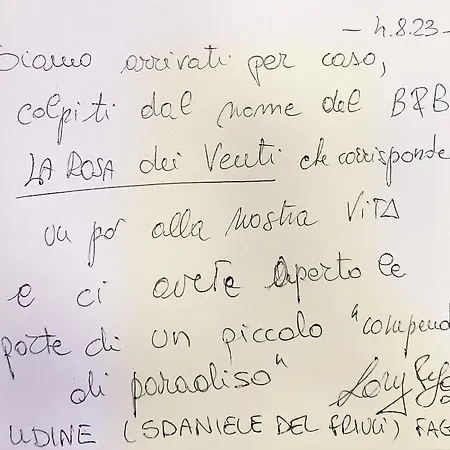 - 4.8.23 -
Siamo arrivati per caso,
colpiti dal nome del B&B
LA ROSA dei Venti che corrisponde
un po' alla nostra VITA
e ci avete aperto le
porte di un piccolo "compend
di paradiso" Lory
UDINE (SDANIELE DEL FRIULI) FAG